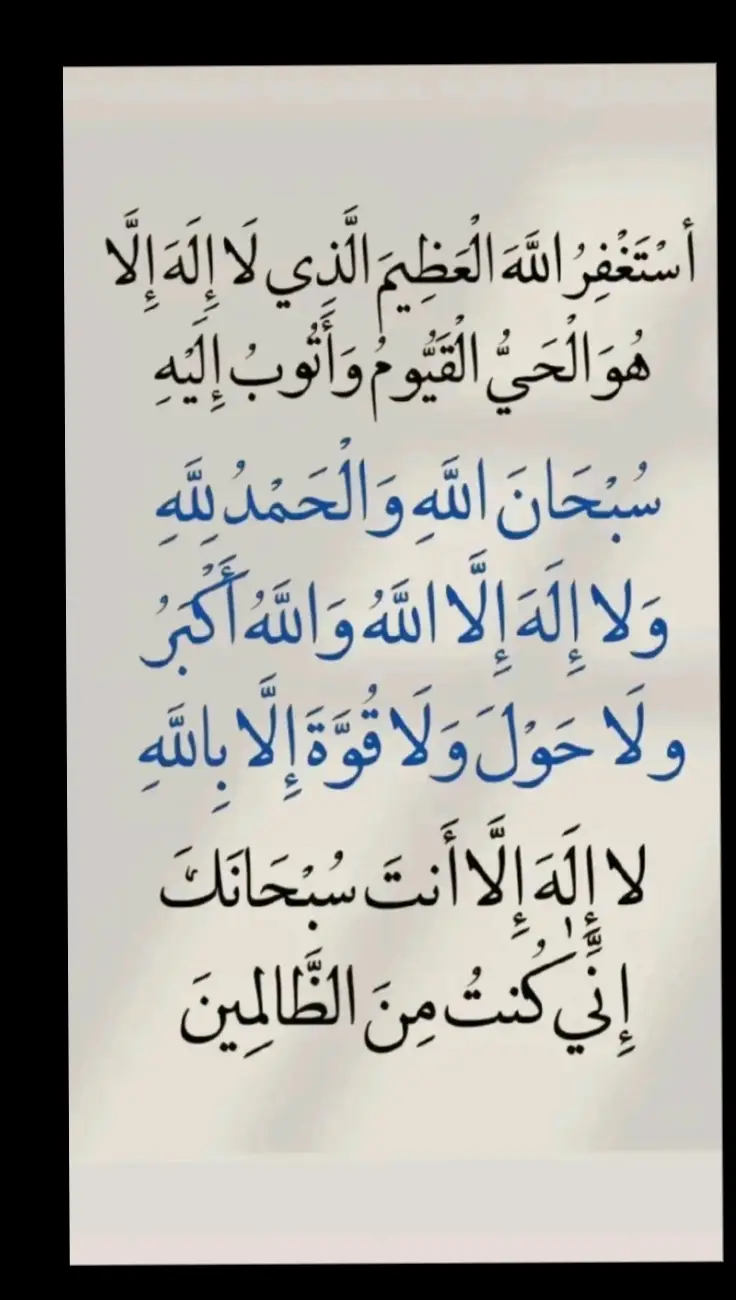 أَسْتَغْفِرُ اللَّهَ الْعَظِيمَ الَّذِي لَا إِلَهَ إِلَّا
هُوَ الْحَيُّ الْقَيُّومُ وَأَتُوبُ إِلَيْهِ
سُبْحَانَ اللَّهِ وَالْحَمْدُ لِلَّهِ
وَلا إِلَهَ إِلَّا اللَّهُ وَاللَّهُ أَكْبَرُ
ولَا حَوْلَ وَلَا قُوَّةَ إِلَّا بِاللَّهِ
لا إِلَهَ إِلَّا أَنتَ سُبْحَانَكَ
إِنِّي كُنتُ مِنَ الظَّالِمِينَ